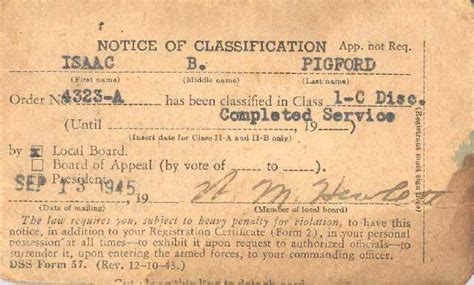 NOTICE OF CLASSIFICATION App. not Req.
ISAAC B. PIGFORD
(First name) (Middle name) (Last name)
Order No. 4323-A has been classified in Class 1-C Disc.
Completed Service
(Until , 19 )
(Insert date for Class II-A and II-B only)
by x Local Board.
Board of Appeal (by vote of to )
President
SEP 13 1945, 19
(Date of mailing) (Member of local board)
The law requires you, subject to heavy penalty for violation, to have this
notice, in addition to your Registration Certificate (Form 2), in your personal
possession at all times—to exhibit it upon request to authorized officials—to
surrender it, upon entering the armed forces, to your commanding officer.
DSS Form 57. (Rev. 12-10-43)
(Registrant must sign here)